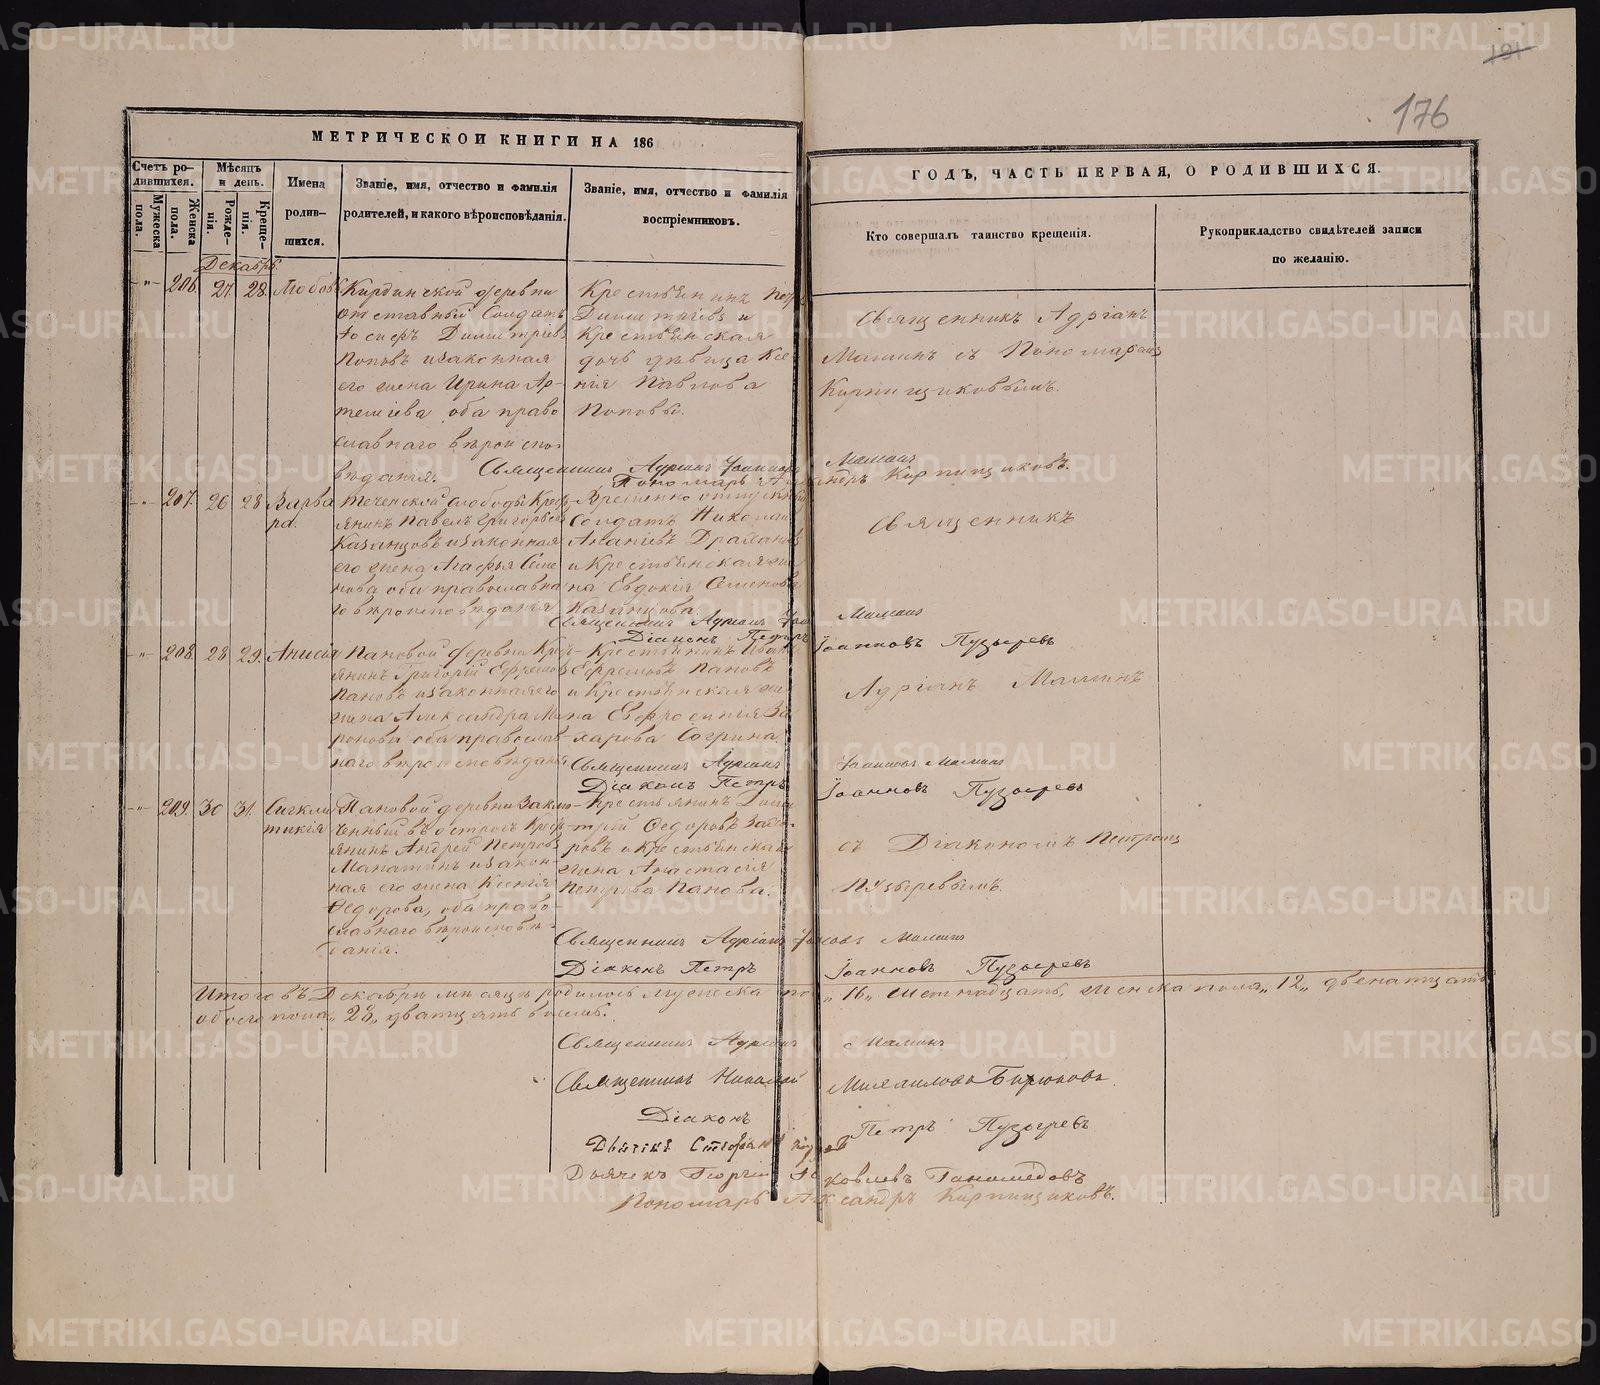 191
176
МЕТРИЧЕСКОЙ КНИГИ НА 186
ГОДЪ, ЧАСТЬ ПЕРВАЯ, О РОДИВШИХСЯ.
Счетъ ро-
дившихся.
Мужеска пола.
Женска пола.
Мѣсяцъ
и день.
Рожде-
нія.
Креще-
нія.
Имена
родив-
шихся.
Званіе, имя, отчество и фамилія
родителей, и какого вѣроисповѣданія.
Званіе, имя, отчество и фамилія
воспріемниковъ.
Кто совершалъ таинство крещенія.
Рукоприкладство свидѣтелей записи
по желанію.
Декабрь
206. 27. 28. Любовь
Кирдинской деревни
отставный Солдатъ
Іосифъ Димитріевъ
Поповъ и законная
его жена Ирина Ар-
темиева оба право
славнаго вѣроиспо-
вѣданія.
Крестьянинъ
Димитріевъ и
Крестьянская
дочь дѣвица Ксе
нія Павлова
Поповы.
Священникъ Адріанъ
Маминъ съ Пономаремъ
Кирпищиковымъ.
Священникъ Адріанъ Іоанновъ Маминъ
Пономарь Александръ Кирпищиковъ.
207. 26 28 Варва
ра.
Теченской слободы Крест-
янинъ Павелъ Григорьевъ
Казанцовъ и законная
его жена Агафья Семе
нова оба православна
го вѣроисповѣданія
Временно отпускной
Солдатъ Николай
Ананіевъ
и Крестьянская же
на Евдокія Семенова
Казанцова.
Священникъ
Священникъ Адріанъ Іоан Маминъ
Діаконъ Петръ Іоанновъ Пузыревъ
208. 28 29. Анисія
Пановой деревни Крест-
янинъ Григорій Ефремовъ
Пановъ и законная его
жена Александра Ми
ронова оба православ-
наго вѣроисповѣданія
Крестьянинъ Иванъ
Ефремовъ Пановъ
и Крестьянская же
на Евфросинія За
харова Согрина.
Адріанъ Маминъ
Священникъ Адріанъ Іоанновъ Маминъ
Діаконъ Петръ Іоанновъ Пузыревъ
209. 30 31. Сигкли
тикія
Пановой деревни Заклю-
ченный въ острогъ Крест-
янинъ Андрей Петровъ
и закон-
ная его жена Ксенія
Ѳедорова, оба право-
славнаго вѣроисповѣ-
данія.
Крестьянинъ Дими
трій Ѳедоровъ
ровъ и Крестьянская
жена Анастасія
Петрова Панова.
съ Діакономъ Петромъ
Пузыревымъ.
Священникъ Адріанъ Іоановъ Маминъ
Діаконъ Петръ Іоанновъ Пузыревъ
Итого въ Декабрѣ мѣсяцѣ родилось мужеска по „16„ Шетнадцать, женска пола „12„ двенатцать
обоего пола „28„ дватцать восемь.
Священникъ Адріанъ Маминъ
Священникъ Николай Михаиловъ Бирюковъ
Діаконъ Петръ Пузыревъ
Дьячекъ Георгій Яковлевъ Ганимедовъ
Пономарь Александръ Кирпищиковъ.
METRIKI.GASO-URAL.RU